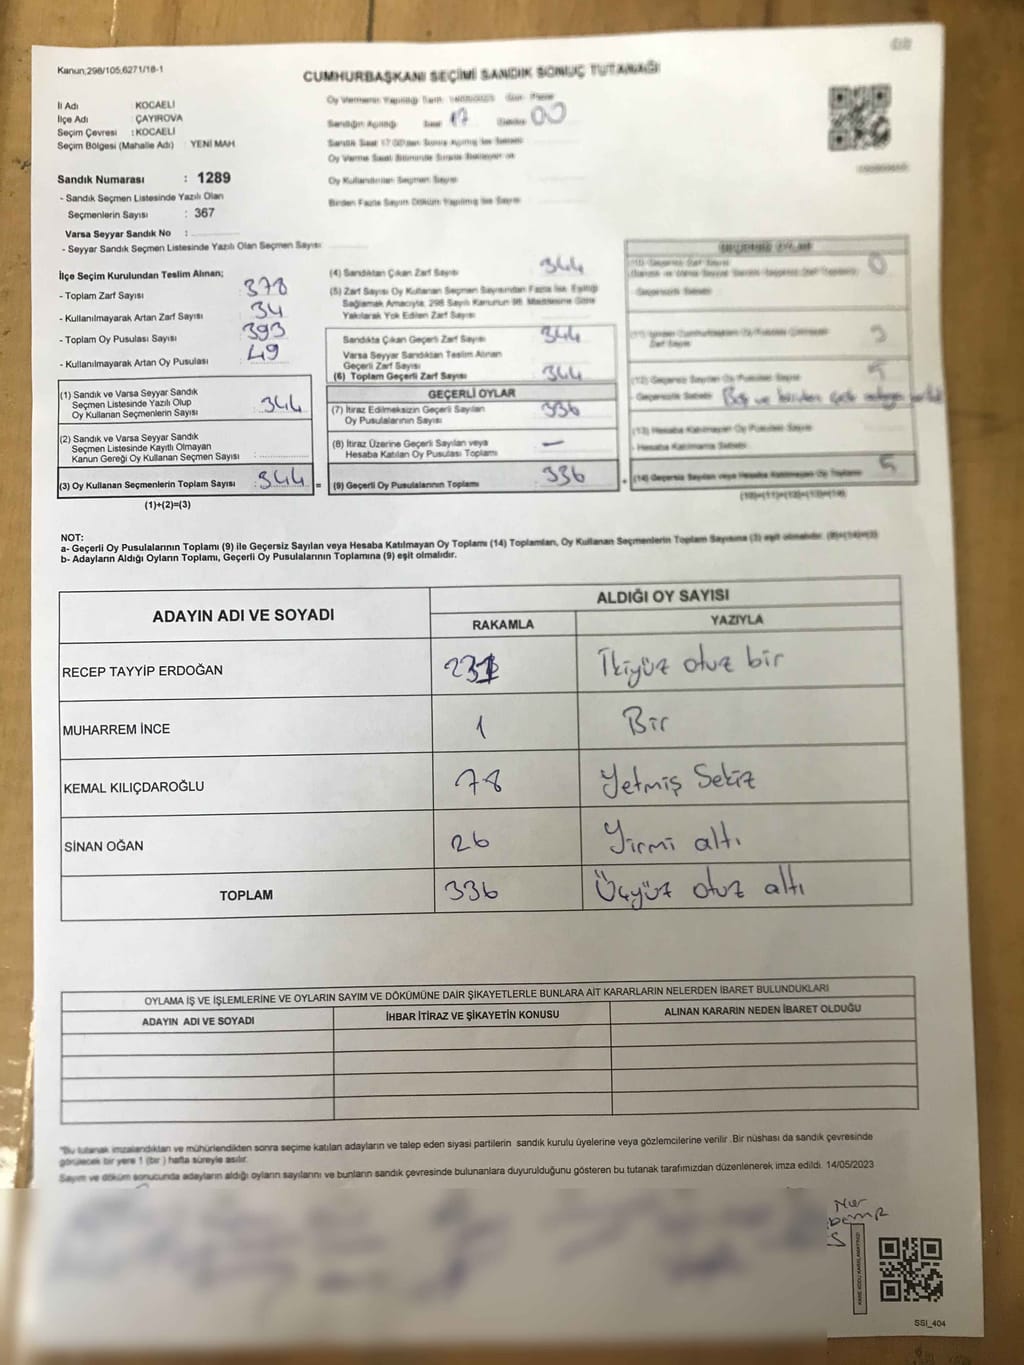 Kanun;298/105,6271/18-1
CUMHURBAŞKANI SEÇİMİ SANDIK SONUÇ TUTANAĞI
İl Adı : KOCAELİ
İlçe Adı : ÇAYIROVA
Seçim Çevresi : KOCAELİ
Seçim Bölgesi (Mahalle Adı) YENİ MAH.
Sandık Numarası : 1289
- Sandık Seçmen Listesinde Yazılı Olan
Seçmenlerin Sayısı : 367
Varsa Seyyar Sandık No :
- Seyyar Sandık Seçmen Listesinde Yazılı Olan Seçmen Sayısı:
Oy Vermenin Yapıldığı Tarih 14/05/2023 Gün Pazar
Sandığın Açıldığı Saat 17 Dakika 00
Sandık Saat 17:00'den Sonra Açılmış İse Sebebi
Oy Kullandırılan Seçmen Sayısı
Birden Fazla Sayım Döküm Yapılmış İse Sayısı
İlçe Seçim Kurulundan Teslim Alınan;
- Toplam Zarf Sayısı 378
- Kullanılmayarak Artan Zarf Sayısı 34
- Toplam Oy Pusulası Sayısı 393
- Kullanılmayarak Artan Oy Pusulası 49
(1) Sandık ve Varsa Seyyar Sandık
Seçmen Listesinde Yazılı Olup
Oy Kullanan Seçmenlerin Sayısı : 344
(2) Sandık ve Varsa Seyyar Sandık
Seçmen Listesinde Kayıtlı Olmayan
Kanun Gereği Oy Kullanan Seçmen Sayısı :
(3) Oy Kullanan Seçmenlerin Toplam Sayısı : 344 =
(1)+(2)=(3)
(4) Sandıktan Çıkan Zarf Sayısı 344
(5) Zarf Sayısı Oy Kullanan Seçmen Sayısından Fazla İse, Eşitliği
Sağlamak Amacıyla, 298 Sayılı Kanunun 98. Maddesine Göre
Yakılarak Yok Edilen Zarf Sayısı
Sandıkta Çıkan Geçerli Zarf Sayısı 344
Varsa Seyyar Sandıktan Teslim Alınan
Geçerli Zarf Sayısı
(6) Toplam Geçerli Zarf Sayısı 344
GEÇERLİ OYLAR
(7) İtiraz Edilmeksizin Geçerli Sayılan
Oy Pusulalarının Sayısı 336
(8) İtiraz Üzerine Geçerli Sayılan veya
Hesaba Katılan Oy Pusulası Toplamı —
(9) Geçerli Oy Pusulalarının Toplamı 336 +
GEÇERSİZ OYLAR
0
Geçersizlik Sebebi
Zarf Sayısı
(12) Geçersiz Sayılan Oy Pusulası Sayısı
Geçersizlik Sebebi Boş ve birden
(13) Hesaba Katılmayan Oy Pusulası Sayısı
- Hesaba Katılmama Sebebi
(14) Geçersiz Sayılan veya Hesaba Katılmayan Oy Toplamı
(10)+(11)+(12)+(13)=(14)
NOT:
a- Geçerli Oy Pusulalarının Toplamı (9) ile Geçersiz Sayılan veya Hesaba Katılmayan Oy Toplamı (14) Toplamları, Oy Kullanan Seçmenlerin Toplam Sayısına (3) eşit olmalıdır. (9)+(14)=(3)
b- Adayların Aldığı Oyların Toplamı, Geçerli Oy Pusulalarının Toplamına (9) eşit olmalıdır.
ADAYIN ADI VE SOYADI
ALDIĞI OY SAYISI
RAKAMLA YAZIYLA
RECEP TAYYİP ERDOĞAN 231 İkiyüz otuz bir
MUHARREM İNCE 1 Bir
KEMAL KILIÇDAROĞLU 78 Yetmiş Sekiz
SİNAN OĞAN 26 Yirmi altı
TOPLAM 336 Üçyüz otuz altı
OYLAMA İŞ VE İŞLEMLERİNE VE OYLARIN SAYIM VE DÖKÜMÜNE DAİR ŞİKAYETLERLE BUNLARA AİT KARARLARIN NELERDEN İBARET BULUNDUKLARI
ADAYIN ADI VE SOYADI İHBAR İTİRAZ VE ŞİKAYETİN KONUSU ALINAN KARARIN NEDEN İBARET OLDUĞU
"Bu tutanak imzalandıktan ve mühürlendikten sonra seçime katılan adayların ve talep eden siyasi partilerin sandık kurulu üyelerine veya gözlemcilerine verilir .Bir nüshası da sandık çevresinde
görülecek bir yere 1 (bir ) hafta süreyle asılır.
Sayım ve döküm sonucunda adayların aldığı oyların sayılarını ve bunların sandık çevresinde bulunanlara duyurulduğunu gösteren bu tutanak tarafımızdan düzenlenerek imza edildi. 14/05/2023
SSI_404